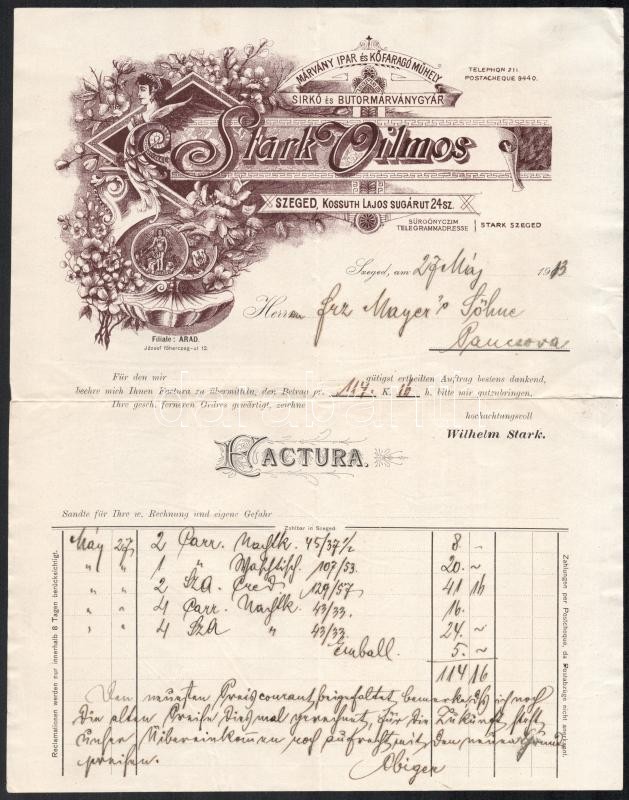 MÁRVÁNY IPAR és KŐFARAGÓ MŰHELY
SIRKŐ és BUTORMÁRVÁNYGYÁR
TELEPHON 211.
POSTACHEQUE 9440.
Stark Vilmos
SZEGED, KOSSUTH LAJOS SUGÁRUT 24 SZ.
SÜRGÖNYCZIM
TELEGRAMMADRESSE
STARK SZEGED
Szeged, am 27 Máj 1913
Herrn Frz Mayer's Söhne
Pancsova
Filiale: ARAD.
József főherczeg-ut 12.
Für den mir gütigst ertheilten Auftrag bestens dankend,
beehre mich Ihnen Factura zu übermitteln, den Betrag pr. 114. K. 16 h. bitte mir gutzubringen,
Ihre gesch. ferneren Ordres gewärtigt, zeichne
hochachtungsvoll
Wilhelm Stark.
FACTURA.
Sandte für Ihre w. Rechnung und eigene Gefahr
Zahlbar in Szeged.
Máj 27 2 Carr. Nachtk. 45/37 1/2 8 -
" " 1 " Waschtisch. 107/53. 20. ~
" " 2 Sza. Cred 129/57 41 16
" " 4 Carr. Nachtk 43/33. 16.
" " 4 Sza " 43/33. 24. ~
Emball. 5. ~
114 16
Den neuesten Preiscourant beigefaltet, bemerke dß ich noch
die alten Preise diesmal gerechnet, für die Zukunft
unser Übereinkommen noch aufrecht mit den neuen Grund
preisen. Obiger
Reclamationen werden nur innerhalb 8 Tagen berücksichtigt.
Zahlungen per Postcheque, da Postabzüge nicht anerkannt.
darabanth